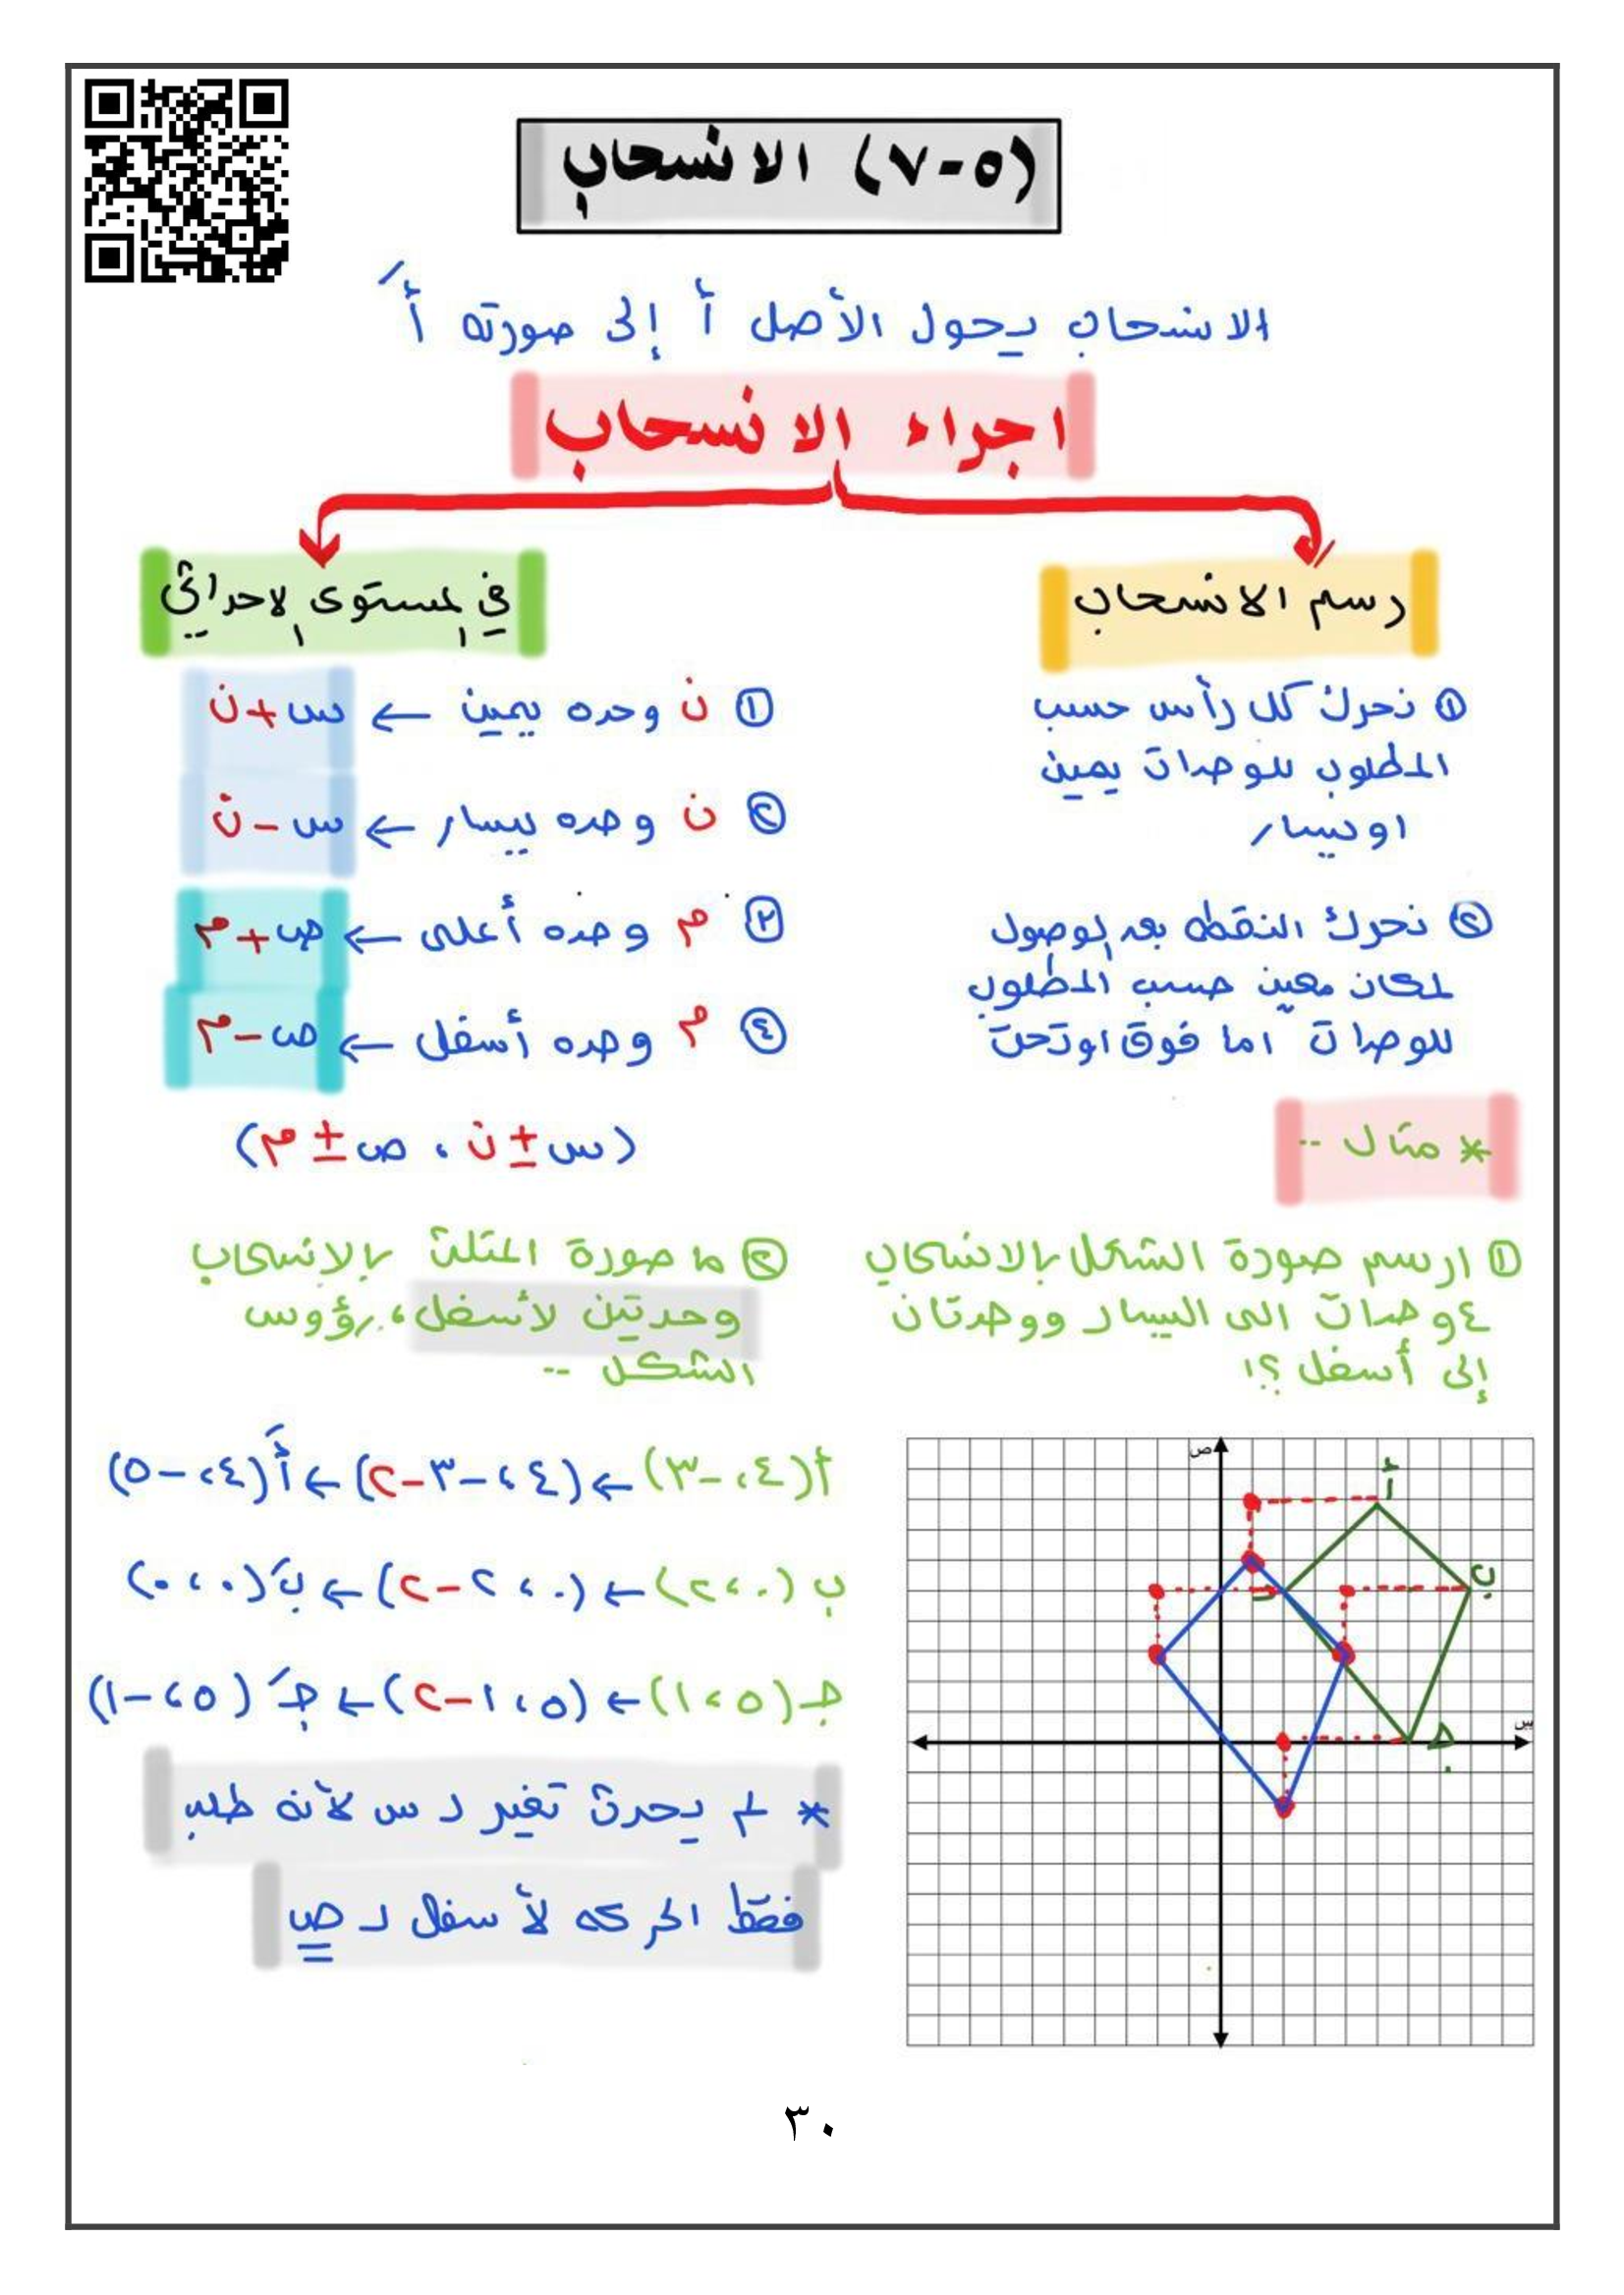 (٥-٧) الانسحاب
الانسحاب يحول الأصل أ إلى صورته أَ
اجراء الانسحاب
رسم الانسحاب
① نحرك كل رأس حسب
المطلوب للوحدات يمين
او يسار
② نحرك النقطه بعد الوصول
لمكان معين حسب المطلوب
للوحدات اما فوق او تحت
في المستوى الإحداثي
① ن وحده يمين ← س+ن
② ن وحده يسار ← س-ن
③ م وحده أعلى ← ص+م
④ م وحده أسفل ← ص-م
(س±ن ، ص±م)
* مثال --
① ارسم صورة الشكل بالانسحاب
٤ وحدات الى اليسار ووحدتان
إلى أسفل ؟!
ص
أ
ب
د
جـ
س
② ما صورة المثلث بالإنسحاب
وحدتين لأسفل ، رؤوس
الشكل --
أ(٤، -٣) ← (٤، -٣-٢) ← أَ(٤، -٥)
ب (٠، ٢) ← (٠، ٢-٢) ← بَ(٠، ٠)
جـ(٥، ١) ← (٥، ١-٢) ← جـَ (٥، -١)
* لم يحدث تغير لـ س لأنه طلب
فقط الحركه لأسفل لـ ص
٣٠